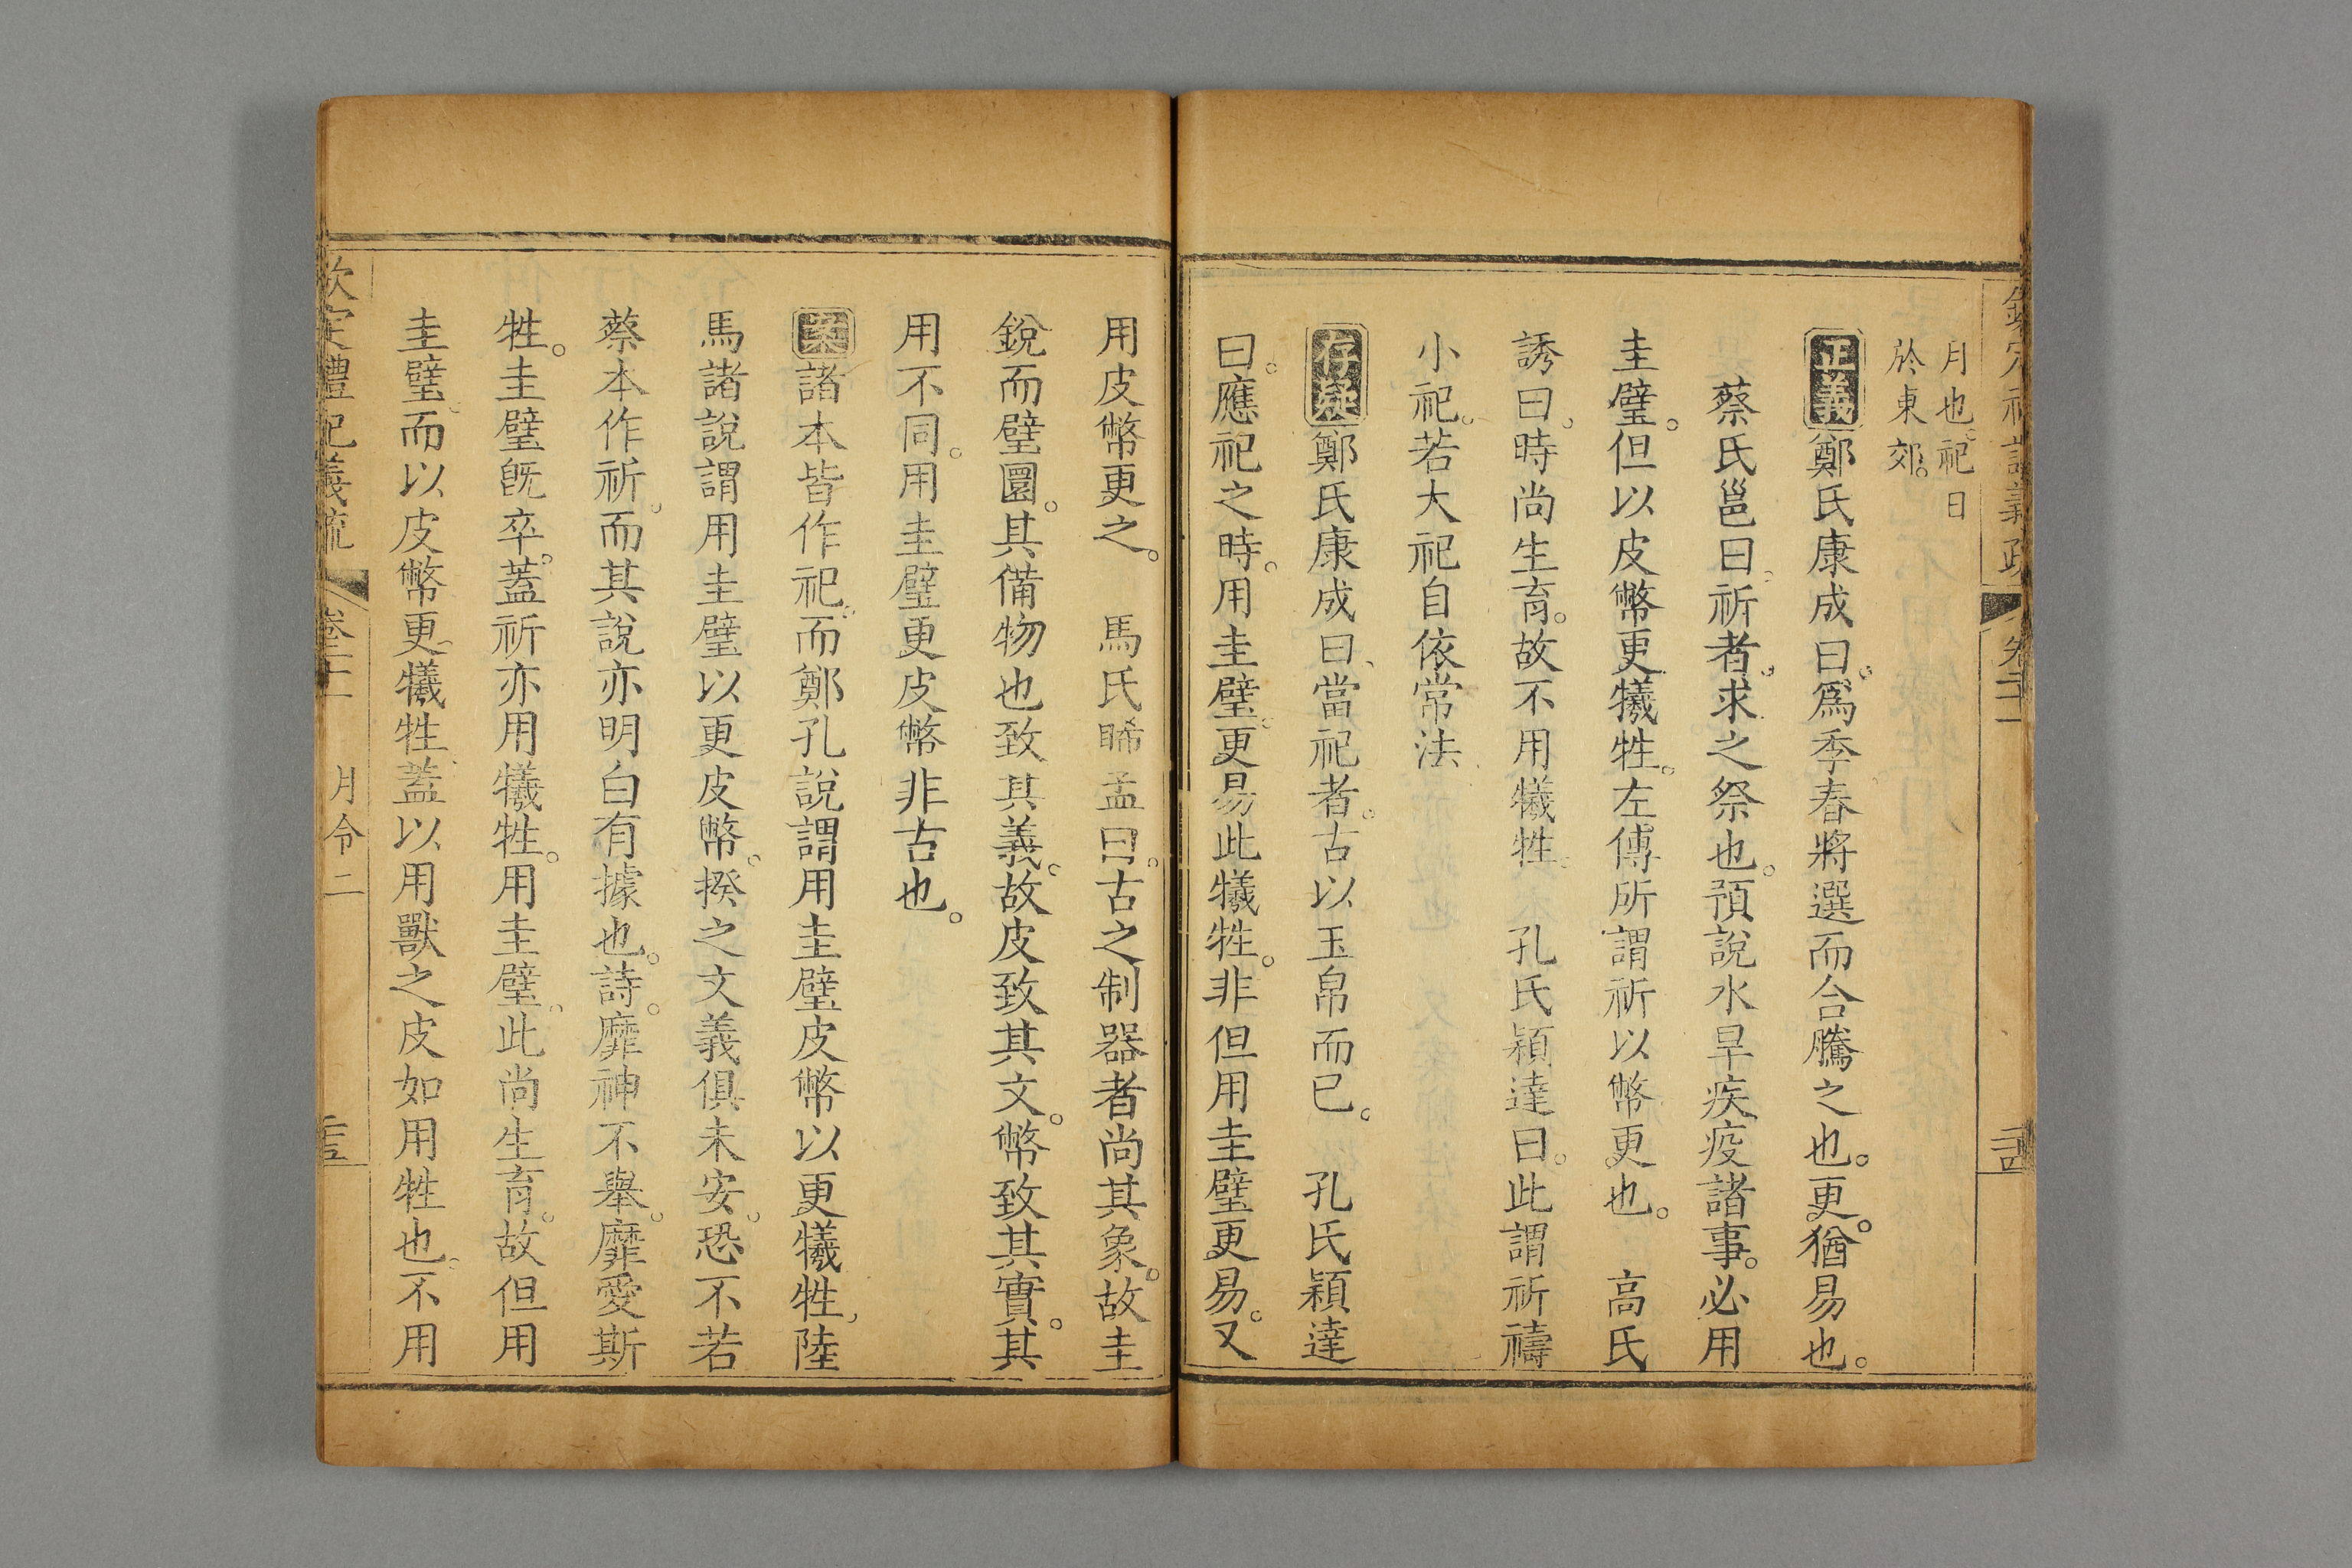 欽定禮記義疏 卷二十一 二四
月也。祀日
於東郊。
正義鄭氏康成曰。爲季春將選而合騰之也。更。猶易也。
蔡氏邕曰。祈者。求之祭也。預說水旱疾疫諸事。必用
圭璧。但以皮幣更犧牲。左傳所謂祈以幣更也。 高氏
誘曰。時尚生育。故不用犧牲。 孔氏穎達曰。此謂祈禱
小祀。若大祀自依常法
存疑鄭氏康成曰、當祀者。古以玉帛而已。 孔氏穎達
曰。應祀之時。用圭璧。更易此犧牲。非但用圭璧更易。又
用皮幣更之。 馬氏晞孟曰。古之制器者尚其象。故圭
銳而璧圜。其備物也致其義。故皮致其文。幣致其實。其
用不同。用圭璧更皮幣非古也。
案諸本皆作祀。而鄭孔說謂用圭璧皮幣以更犧牲、陸
馬諸說謂用圭璧以更皮幣。揆之文義俱未安。恐不若
蔡本作祈。而其說亦明白有據也。詩。靡神不舉。靡愛斯
牲。圭璧旣卒。蓋祈亦用犧牲。用圭璧。此尚生育。故但用
圭璧。而以皮幣更犧牲、蓋以用獸之皮如用牲也。不用
欽定禮記義疏 卷二十一 月令二